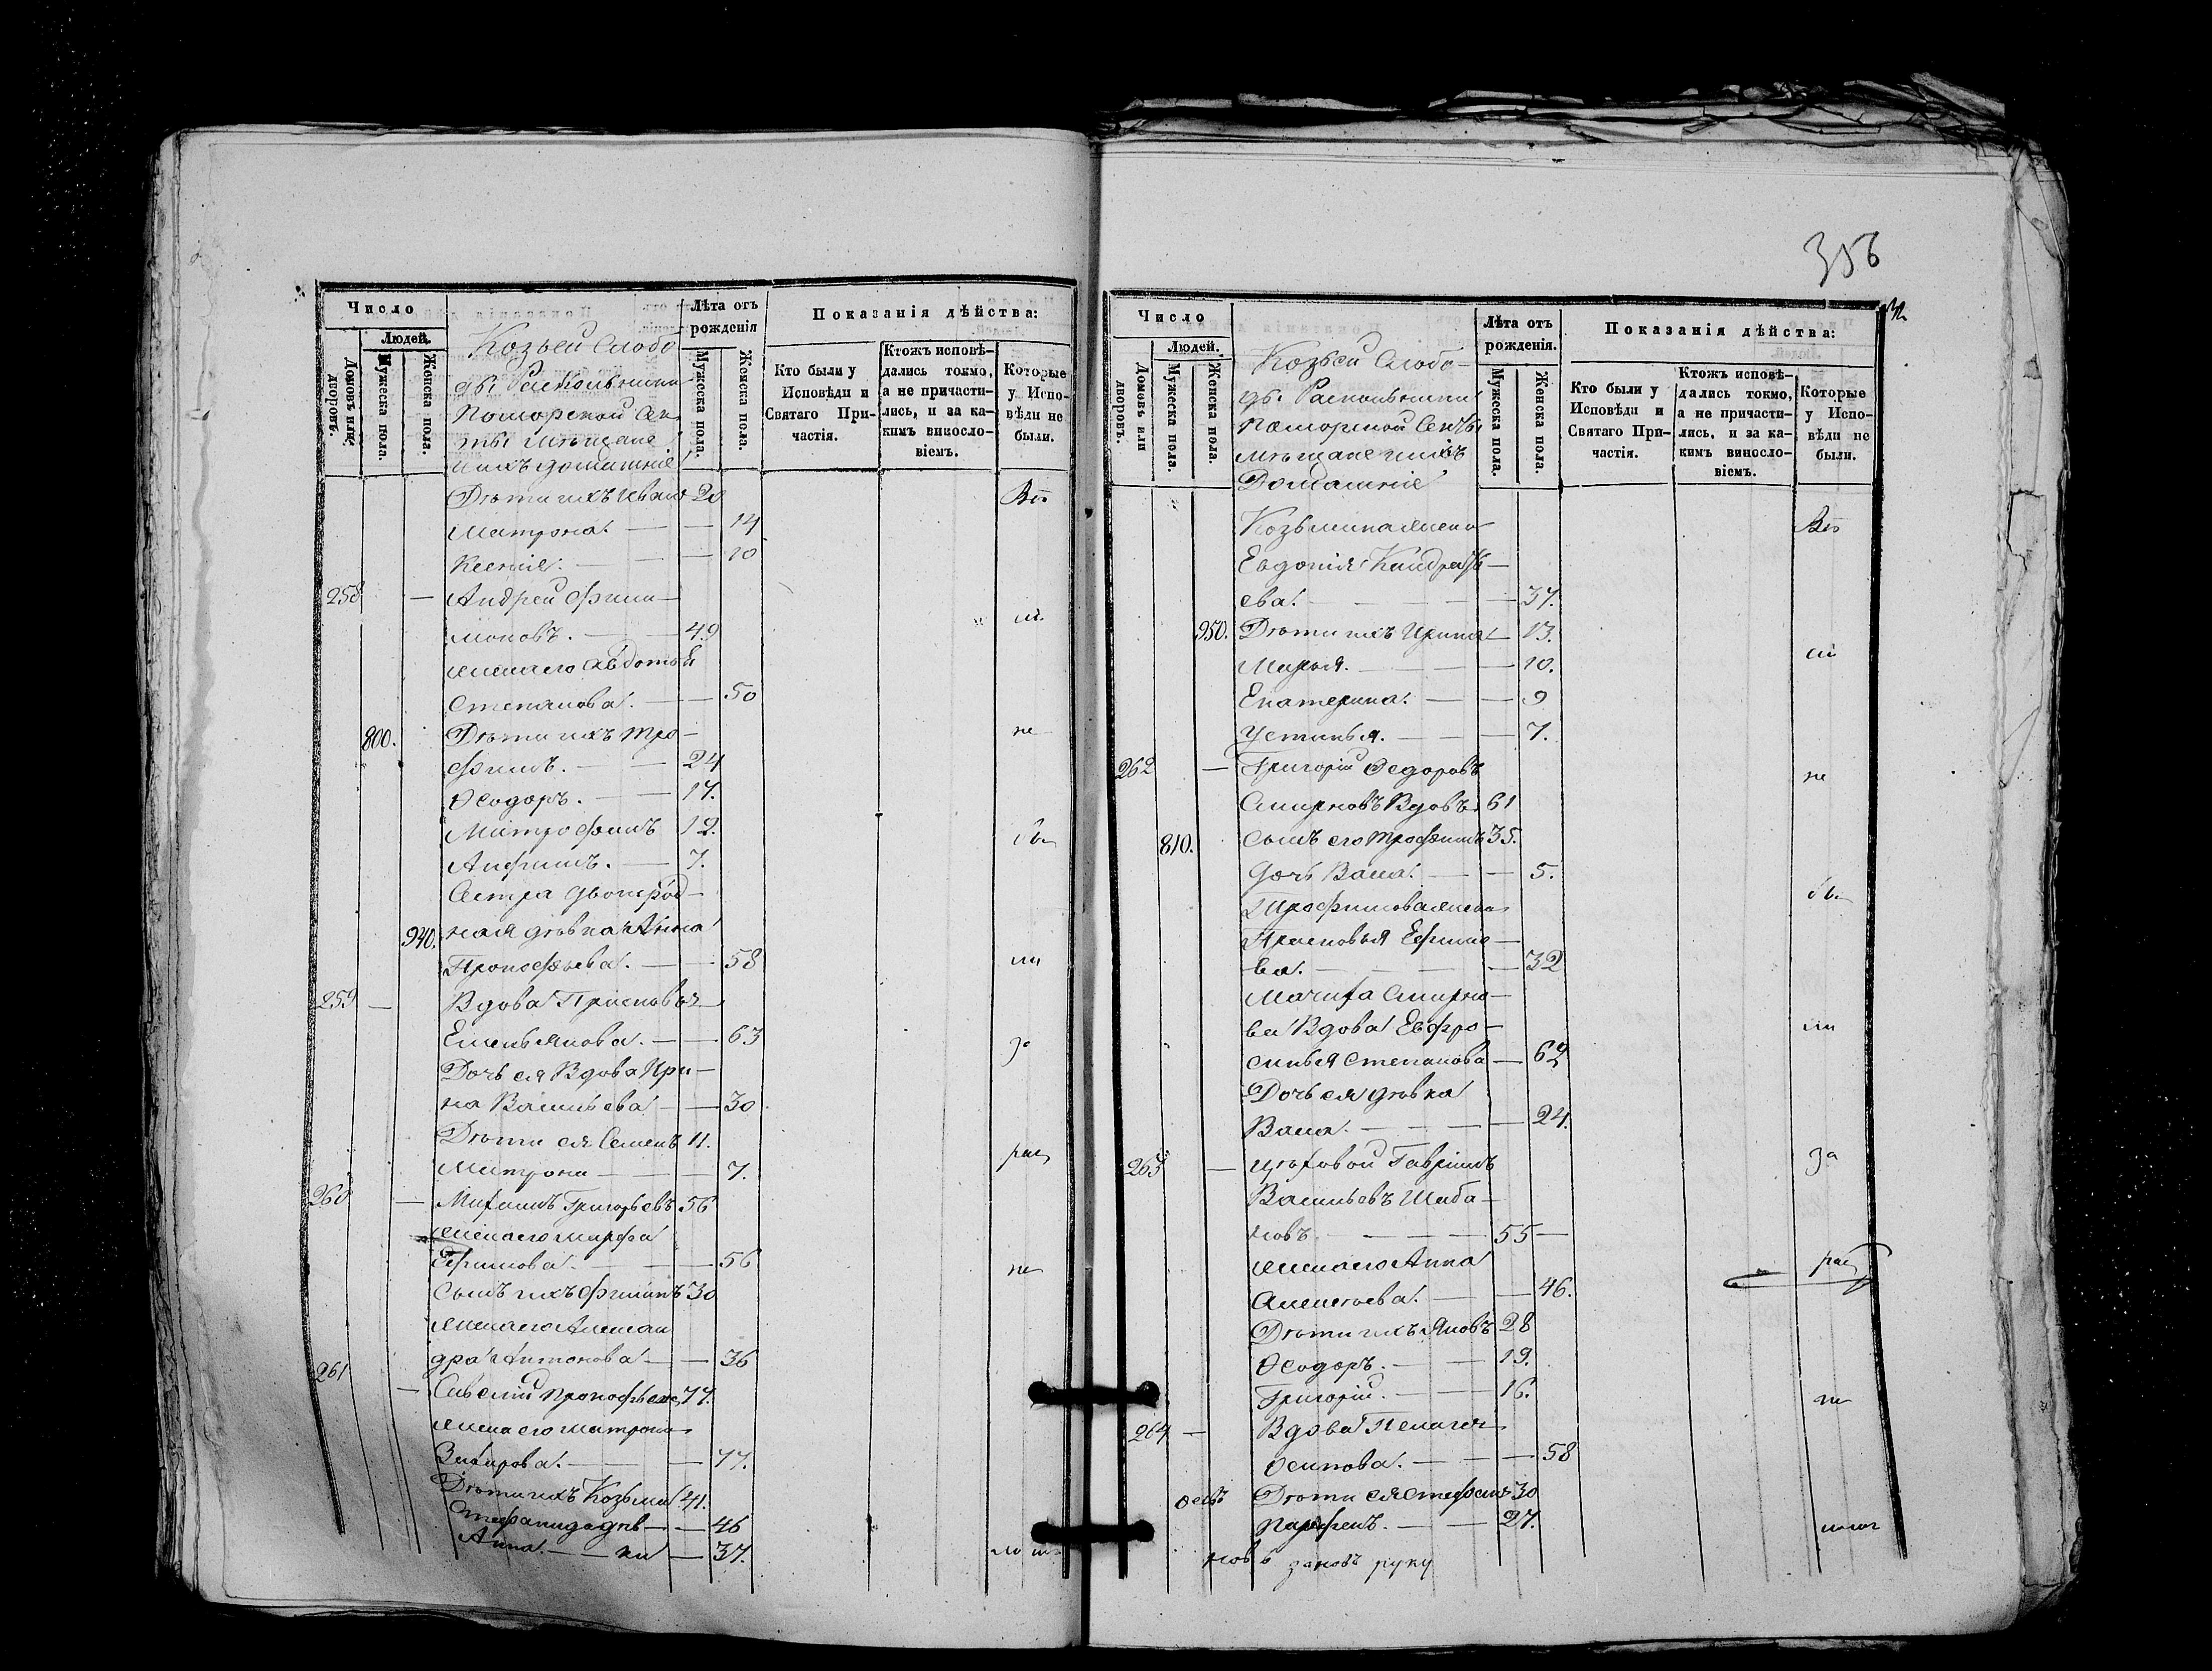 Число
Людей.
Домовъ или дворовъ.
Мужеска пола.
Женска пола.
Козьей Слобо
ды Раскольники
Поморской Сек
ты Мѣщане
и ихъ домашніе
Лѣта отъ рожденія
Мужеска пола.
Женска пола.
Показанія дѣйства:
Кто были у Исповѣди и Святаго При-частія.
Ктожъ исповѣ-дались токмо, а не причасти-лись, и за ка-кимъ винослo-віемъ.
Которые у Испо-вѣди не были.
Дѣти ихъ Иванъ 20
Матрона. — — 14
Ксенія. — — 10
258 — Андрей Фили—
моновъ. — 49
жена его Авдотья
Степанова. — — 50
800. Дѣти ихъ Тро—
фимъ. — 24
Ѳеодоръ. — 17.
Митрофанъ 12.
Анфимъ. — 7.
Сестра двоюрод—
940. ная дѣвка Анна
Прокофьева. — — 58
259 — Вдова Прасковья
Емельянова. — — 63
Дочь ея Вдова Ири—
на Васильева — — 30
Дѣти ея Семенъ 11.
Матрона — — 7.
260 — Михаилъ Григорьевъ 56
жена его Марфа
Ефимова. — — 56
Сынъ ихъ Филиппъ 30
жена его Александ
дра Антонова — — 36
261 — Савелій Прокофьевъ 77.
жена его Матрона
Захарова. — — 77.
Дѣти ихъ Козьма 41.
Стефанида дѣв — — 46
Анна. — — ки — 37.
356
Число
Людей.
Домовъ или дворовъ.
Мужеска пола.
Женска пола.
Козьей Слобо—
ды Раскольники
Поморской Секты
мѣщане и ихъ
Домашніе
Лѣта отъ рожденія.
Мужеска пола.
Женска пола.
Показанія дѣйства:
Кто были у Исповѣди и Святаго При-частія.
Ктожъ исповѣ-дались токмо, а не причасти-лись, и за ка-кимъ винослo-віемъ.
Которые у Испо-вѣди не были.
Козьмина жена
Евдокія Кандратьь—
ева. — — 37.
950. Дѣти ихъ Ирина — 13.
Марья. — — 10.
Екатерина. — — 9
Устинья. — — 7.
262 — Григорій Ѳедоровъ
Смирновъ Вдовъ. 61
810. Сынъ его Трофимъ 35.
Дочь Васса. — — 5.
Трофимова жена
Прасковья Ефимо—
ва. — — 32
Мачиха Смирно—
ва Вдова Евфро—
синья Степанова — 62
Дочь ея дѣвка
Васса. — — 24.
263 — Цѣховой Гавріилъ
Васильевъ Шаба—
новъ — — 55 —
жена его Анна
Алексѣева. — — 46.
Дѣти ихъ Яковъ 28
Ѳеодоръ. — 19.
Григорій. — 16.
264 — Вдова Пелагея
Осипова. — — 58
Дѣти ея Стефанъ 30
Парфенъ. — 27.
руку